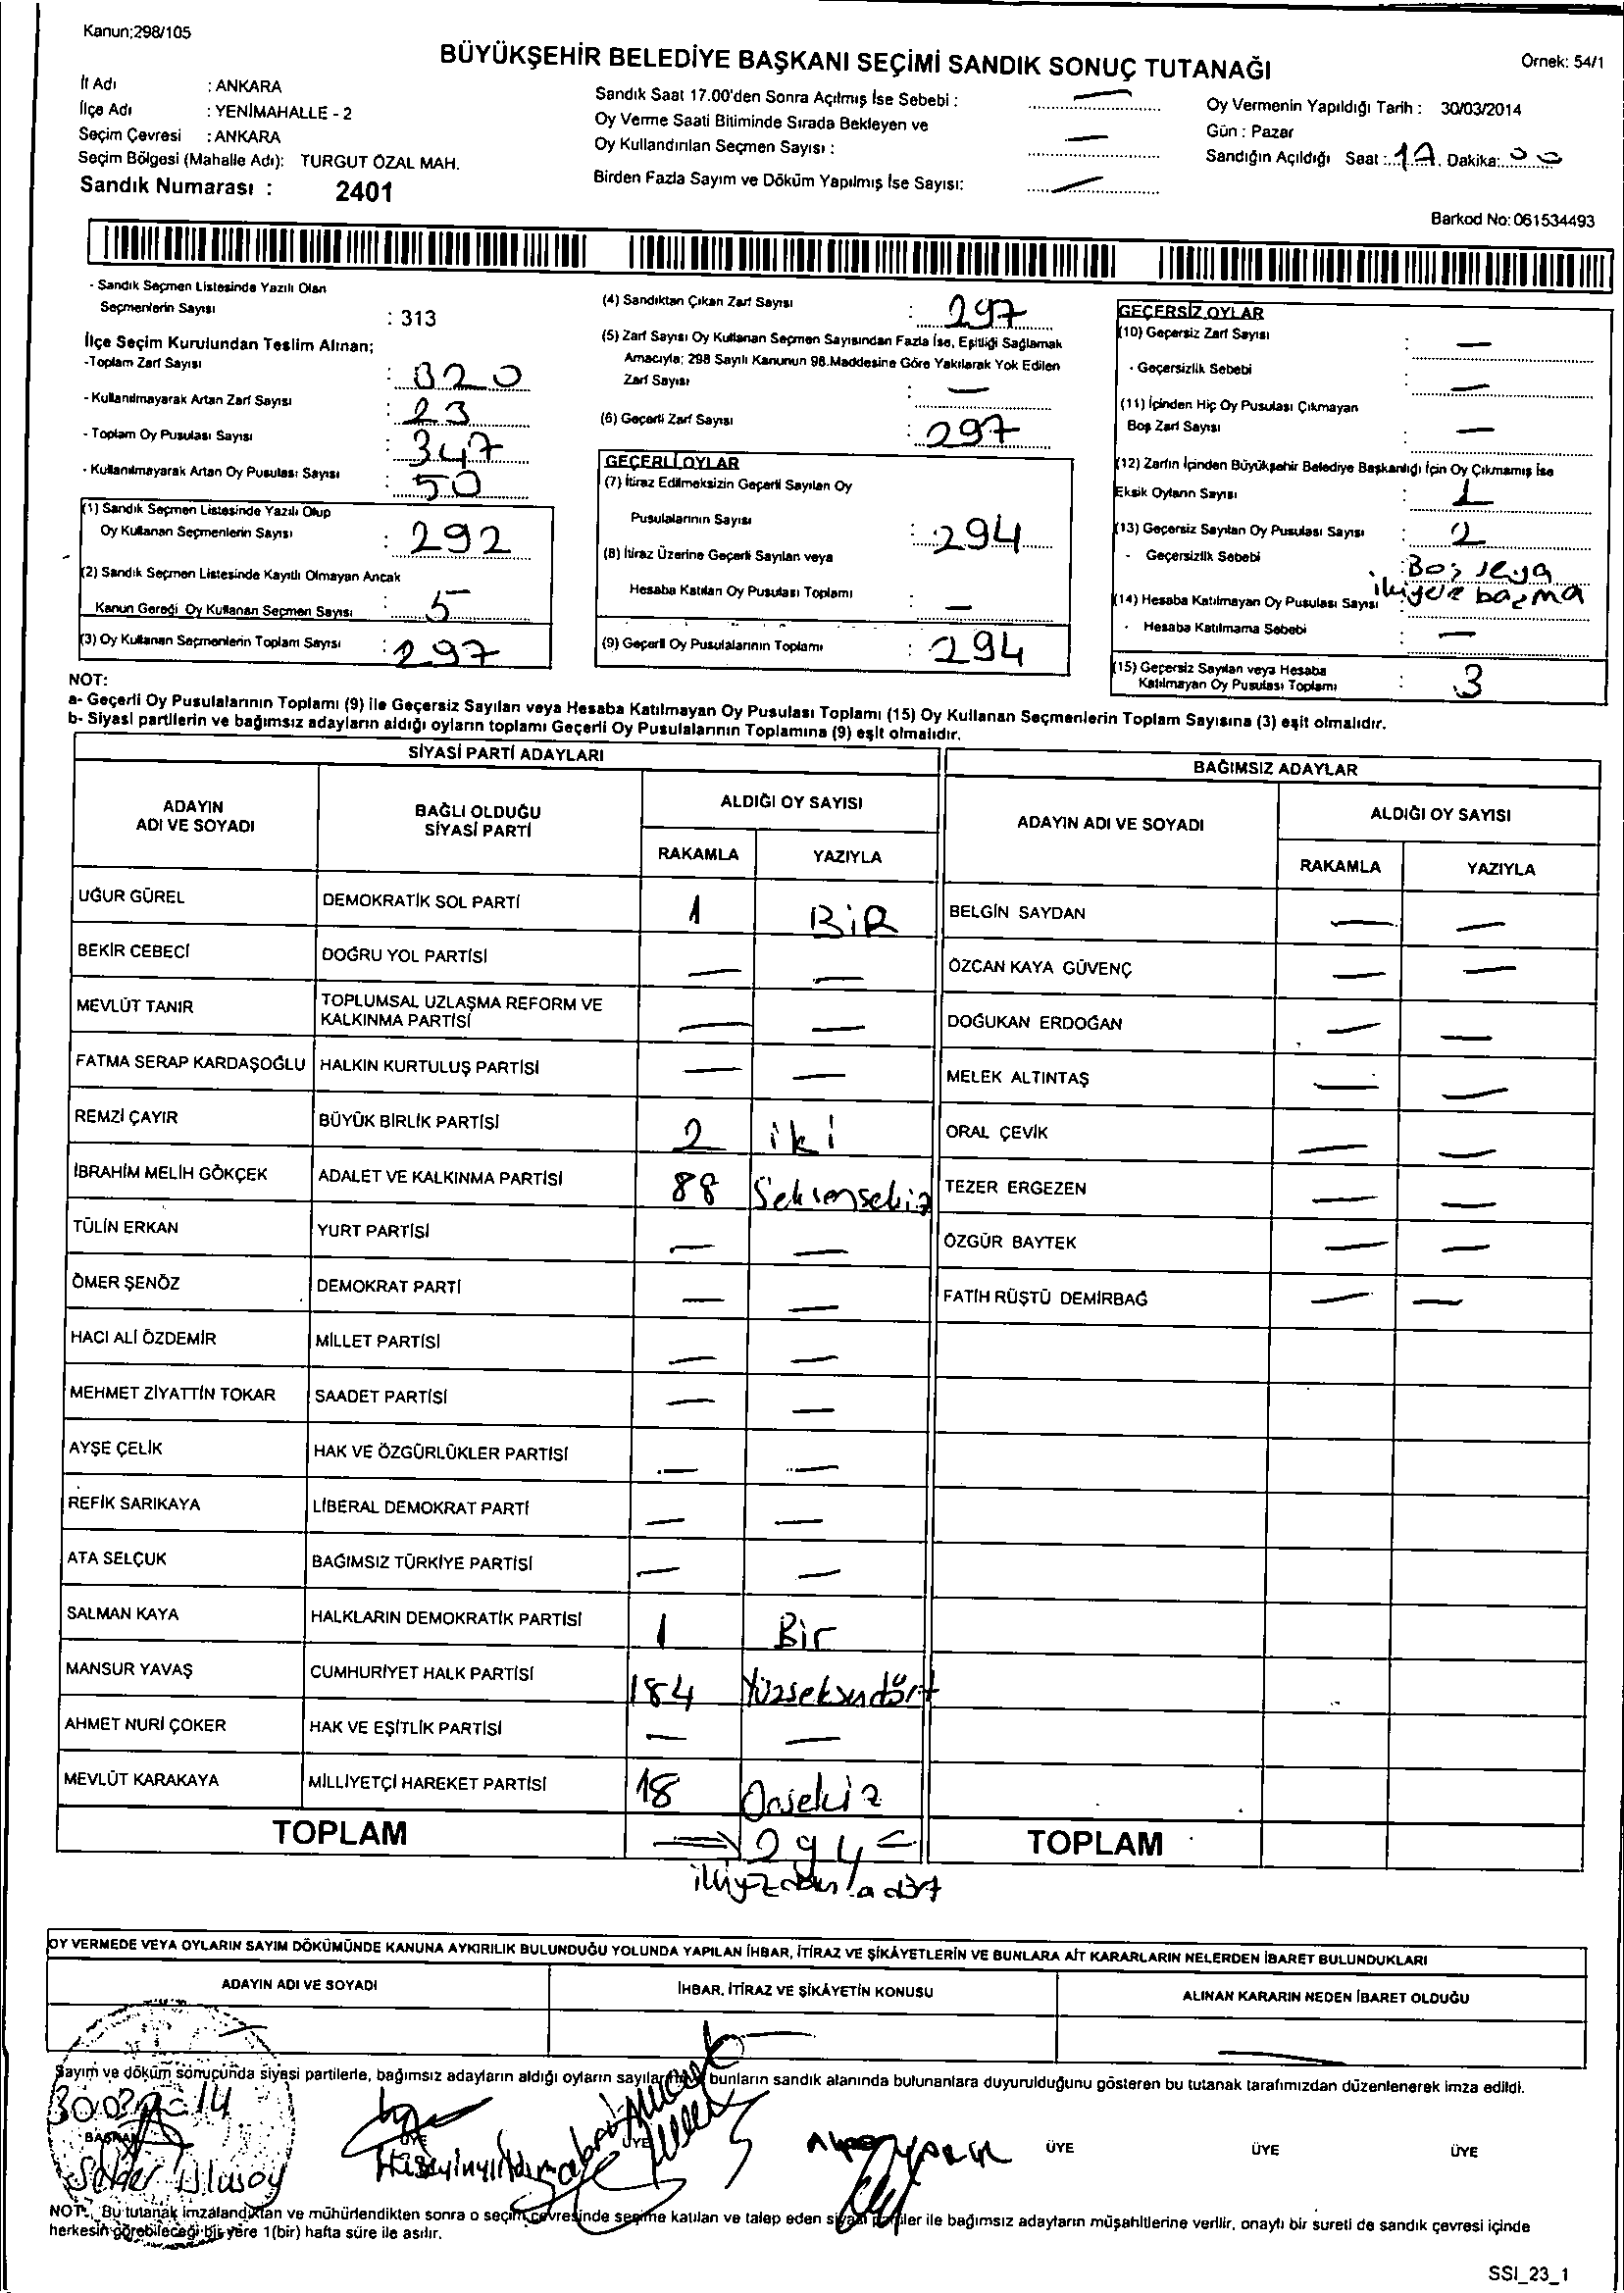 Kanun;298/105
BÜYÜKŞEHİR BELEDİYE BAŞKANI SEÇİMİ SANDIK SONUÇ TUTANAĞI
Örnek: 54/1
İl Adı : ANKARA
İlçe Adı : YENİMAHALLE - 2
Seçim Çevresi : ANKARA
Seçim Bölgesi (Mahalle Adı): TURGUT ÖZAL MAH.
Sandık Numarası : 2401
Sandık Saat 17.00'den Sonra Açılmış İse Sebebi : —
Oy Verme Saati Bitiminde Sırada Bekleyen ve
Oy Kullandırılan Seçmen Sayısı : —
Birden Fazla Sayım ve Döküm Yapılmış İse Sayısı: —
Oy Vermenin Yapıldığı Tarih : 30/03/2014
Gün : Pazar
Sandığın Açıldığı Saat : 17 Dakika: 00
Barkod No: 061534493
- Sandık Seçmen Listesinde Yazılı Olan
Seçmenlerin Sayısı : 313
İlçe Seçim Kurulundan Teslim Alınan;
-Toplam Zarf Sayısı : 320
- Kullanılmayarak Artan Zarf Sayısı : 23
- Toplam Oy Pusulası Sayısı : 347
- Kullanılmayarak Artan Oy Pusulası Sayısı : 50
(1) Sandık Seçmen Listesinde Yazılı Olup
Oy Kullanan Seçmenlerin Sayısı : 292
(2) Sandık Seçmen Listesinde Kayıtlı Olmayan Ancak
Kanun Gereği Oy Kullanan Seçmen Sayısı : 5
(3) Oy Kullanan Seçmenlerin Toplam Sayısı : 297
(4) Sandıktan Çıkan Zarf Sayısı : 297
(5) Zarf Sayısı Oy Kullanan Seçmen Sayısından Fazla İse, Eşitliği Sağlamak
Amacıyla; 298 Sayılı Kanunun 98.Maddesine Göre Yakılarak Yok Edilen
Zarf Sayısı : —
(6) Geçerli Zarf Sayısı : 297
GEÇERLİ OYLAR
(7) İtiraz Edilmeksizin Geçerli Sayılan Oy
Pusulalarının Sayısı : 294
(8) İtiraz Üzerine Geçerli Sayılan veya
Hesaba Katılan Oy Pusulası Toplamı : —
(9) Geçerli Oy Pusulalarının Toplamı : 294
GEÇERSİZ OYLAR
(10) Geçersiz Zarf Sayısı : —
- Geçersizlik Sebebi : —
(11) İçinden Hiç Oy Pusulası Çıkmayan
Boş Zarf Sayısı : —
(12) Zarfın İçinden Büyükşehir Belediye Başkanlığı İçin Oy Çıkmamış İse
Eksik Oyların Sayısı : 1
(13) Geçersiz Sayılan Oy Pusulası Sayısı : 2
- Geçersizlik Sebebi : Boş veya
ikiyere basma
(14) Hesaba Katılmayan Oy Pusulası Sayısı
- Hesaba Katılmama Sebebi : —
(15) Geçersiz Sayılan veya Hesaba
Katılmayan Oy Pusulası Toplamı : 3
NOT:
a- Geçerli Oy Pusulalarının Toplamı (9) ile Geçersiz Sayılan veya Hesaba Katılmayan Oy Pusulası Toplamı (15) Oy Kullanan Seçmenlerin Toplam Sayısına (3) eşit olmalıdır.
b- Siyasi partilerin ve bağımsız adayların aldığı oyların toplamı Geçerli Oy Pusulalarının Toplamına (9) eşit olmalıdır.
SİYASİ PARTİ ADAYLARI
BAĞIMSIZ ADAYLAR
ADAYIN ADI VE SOYADI
BAĞLI OLDUĞU SİYASİ PARTİ
ALDIĞI OY SAYISI
RAKAMLA YAZIYLA
ADAYIN ADI VE SOYADI
ALDIĞI OY SAYISI
RAKAMLA YAZIYLA
UĞUR GÜREL DEMOKRATİK SOL PARTİ 1 BİR
BEKİR CEBECİ DOĞRU YOL PARTİSİ — —
MEVLÜT TANIR TOPLUMSAL UZLAŞMA REFORM VE KALKINMA PARTİSİ — —
FATMA SERAP KARDAŞOĞLU HALKIN KURTULUŞ PARTİSİ — —
REMZİ ÇAYIR BÜYÜK BİRLİK PARTİSİ 2 iki
İBRAHİM MELİH GÖKÇEK ADALET VE KALKINMA PARTİSİ 88 Seksensekiz
TÜLİN ERKAN YURT PARTİSİ — —
ÖMER ŞENÖZ DEMOKRAT PARTİ — —
HACI ALİ ÖZDEMİR MİLLET PARTİSİ — —
MEHMET ZİYATTİN TOKAR SAADET PARTİSİ — —
AYŞE ÇELİK HAK VE ÖZGÜRLÜKLER PARTİSİ — —
REFİK SARIKAYA LİBERAL DEMOKRAT PARTİ — —
ATA SELÇUK BAĞIMSIZ TÜRKİYE PARTİSİ — —
SALMAN KAYA HALKLARIN DEMOKRATİK PARTİSİ 1 Bir
MANSUR YAVAŞ CUMHURİYET HALK PARTİSİ 184 Yüzseksendört
AHMET NURİ ÇOKER HAK VE EŞİTLİK PARTİSİ — —
MEVLÜT KARAKAYA MİLLİYETÇİ HAREKET PARTİSİ 18 Onsekiz
BELGİN SAYDAN — —
ÖZCAN KAYA GÜVENÇ — —
DOĞUKAN ERDOĞAN — —
MELEK ALTINTAŞ — —
ORAL ÇEVİK — —
TEZER ERGEZEN — —
ÖZGÜR BAYTEK — —
FATİH RÜŞTÜ DEMİRBAĞ — —
TOPLAM 294
TOPLAM
OY VERMEDE VEYA OYLARIN SAYIM DÖKÜMÜNDE KANUNA AYKIRILIK BULUNDUĞU YOLUNDA YAPILAN İHBAR, İTİRAZ VE ŞİKÂYETLERİN VE BUNLARA AİT KARARLARIN NELERDEN İBARET BULUNDUKLARI
ADAYIN ADI VE SOYADI İHBAR, İTİRAZ VE ŞİKÂYETİN KONUSU ALINAN KARARIN NEDEN İBARET OLDUĞU
— — —
Sayım ve döküm sonucunda siyasi partilerle, bağımsız adayların aldığı oyların bunların sandık alanında bulunanlara duyurulduğunu gösteren bu tutanak tarafımızdan düzenlenerek imza edildi.
BAŞKAN ÜYE ÜYE ÜYE ÜYE ÜYE
NOT: Bu tutanak imzalandıktan ve mühürlendikten sonra o seçim çevresinde seçime katılan ve talep eden siyasi partiler ile bağımsız adayların müşahitlerine verilir, onaylı bir sureti de sandık çevresi içinde
herkesin görebileceği bir yere 1(bir) hafta süre ile asılır.
SSI_23_1